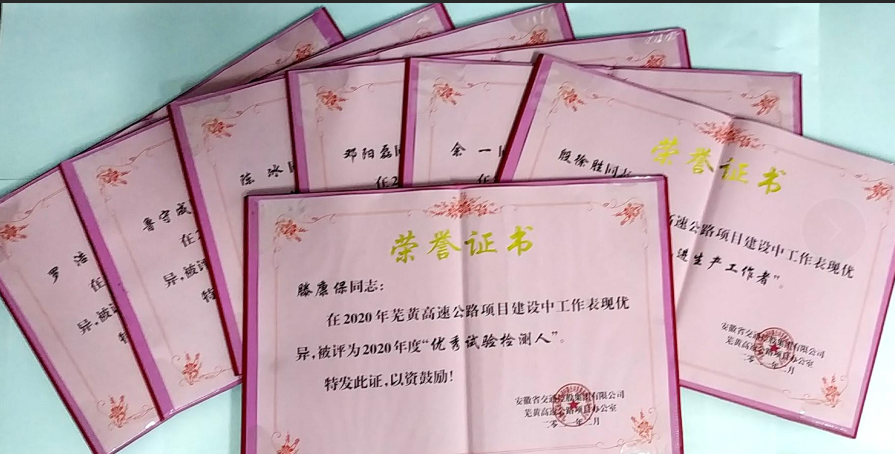 罗浩
在
异,被评
特
鲁守成
在2
异,被
特
陈冰同
邓阳磊同
在2
余一同
殷徐胜同志
荣誉证书
高速公路项目建设中工作表现优
进生产工作者”。
安徽省交通控股集团有限公司
芜黄高速公路项目办公室
月
荣誉证书
滕康保同志:
在2020年芜黄高速公路项目建设中工作表现优
异,被评为2020年度“优秀试验检测人”。
特发此证,以资鼓励!
安徽省交通控股集团有限公司
芜黄高速公路项目办公室
年二月